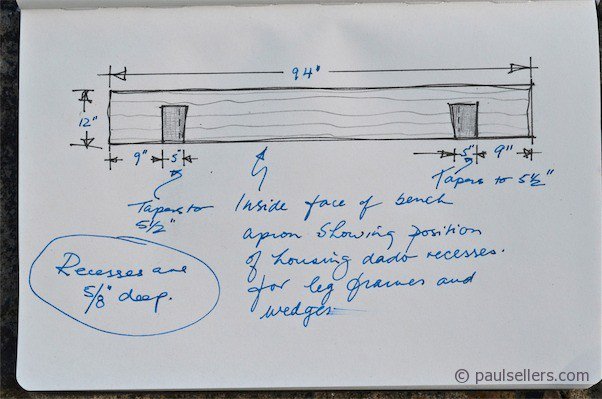 94"
12"
9" 5" 5" 9"
Tapers to
5 1/2"
Tapers to 5 1/2"
Inside face of bench
apron showing position
of housing dado recesses.
for leg frames and
wedges
Recesses are
5/8" deep.
© paulsellers.com